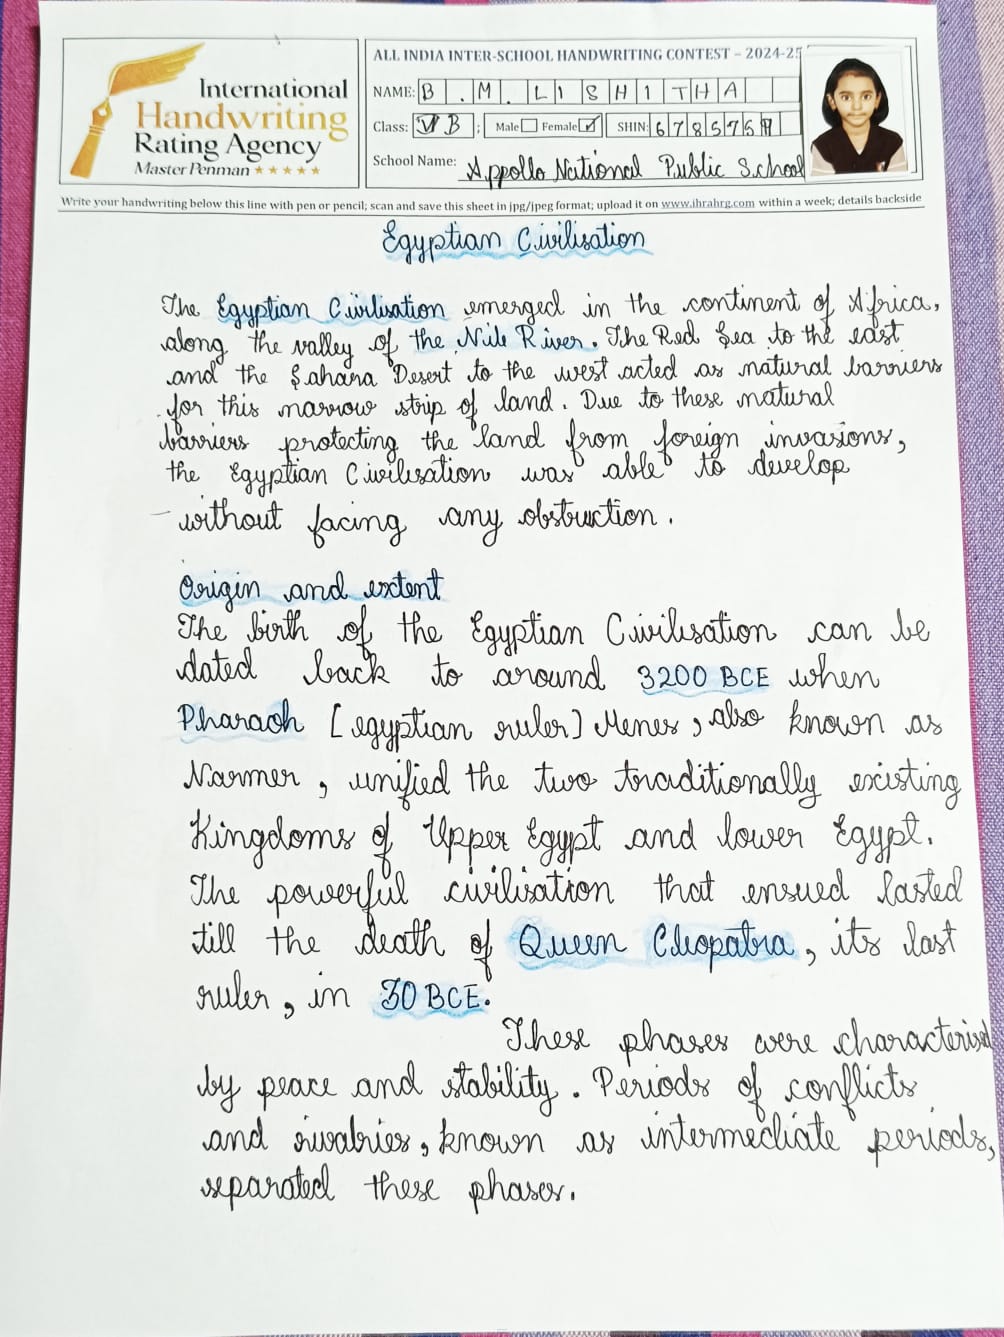 International
Handwriting
Rating Agency
Master Penman
ALL INDIA INTER-SCHOOL HANDWRITING CONTEST – 2024-25
NAME: B . M . LISHITHA
Class: VI B ; Male Female ✓ SHIN: 6785757
School Name: Appollo National Public School
Write your handwriting below this line with pen or pencil; scan and save this sheet in jpg/jpeg format; upload it on www.ihrahrg.com within a week; details backside
Egyptian Civilisation
The Egyptian Civilisation emerged in the continent of Africa,
along the valley of the Nile River. The Red Sea to the east
and the Sahara Desert to the west acted as natural barriers
for this narrow strip of land. Due to these natural
barriers protecting the land from foreign invasions,
the Egyptian Civilisation was able to develop
without facing any obstruction.
Origin and extent
The birth of the Egyptian Civilisation can be
dated back to around 3200 BCE when
Pharaoh [egyptian ruler] Menes, also known as
Narmer, unified the two traditionally existing
Kingdoms of Upper Egypt and lower Egypt.
The powerful civilisation that ensued lasted
till the death of Queen Cleopatra, its last
ruler, in 30 BCE.
These phases were characterised
by peace and stability. Periods of conflicts
and rivalries, known as intermediate periods,
separated these phases.